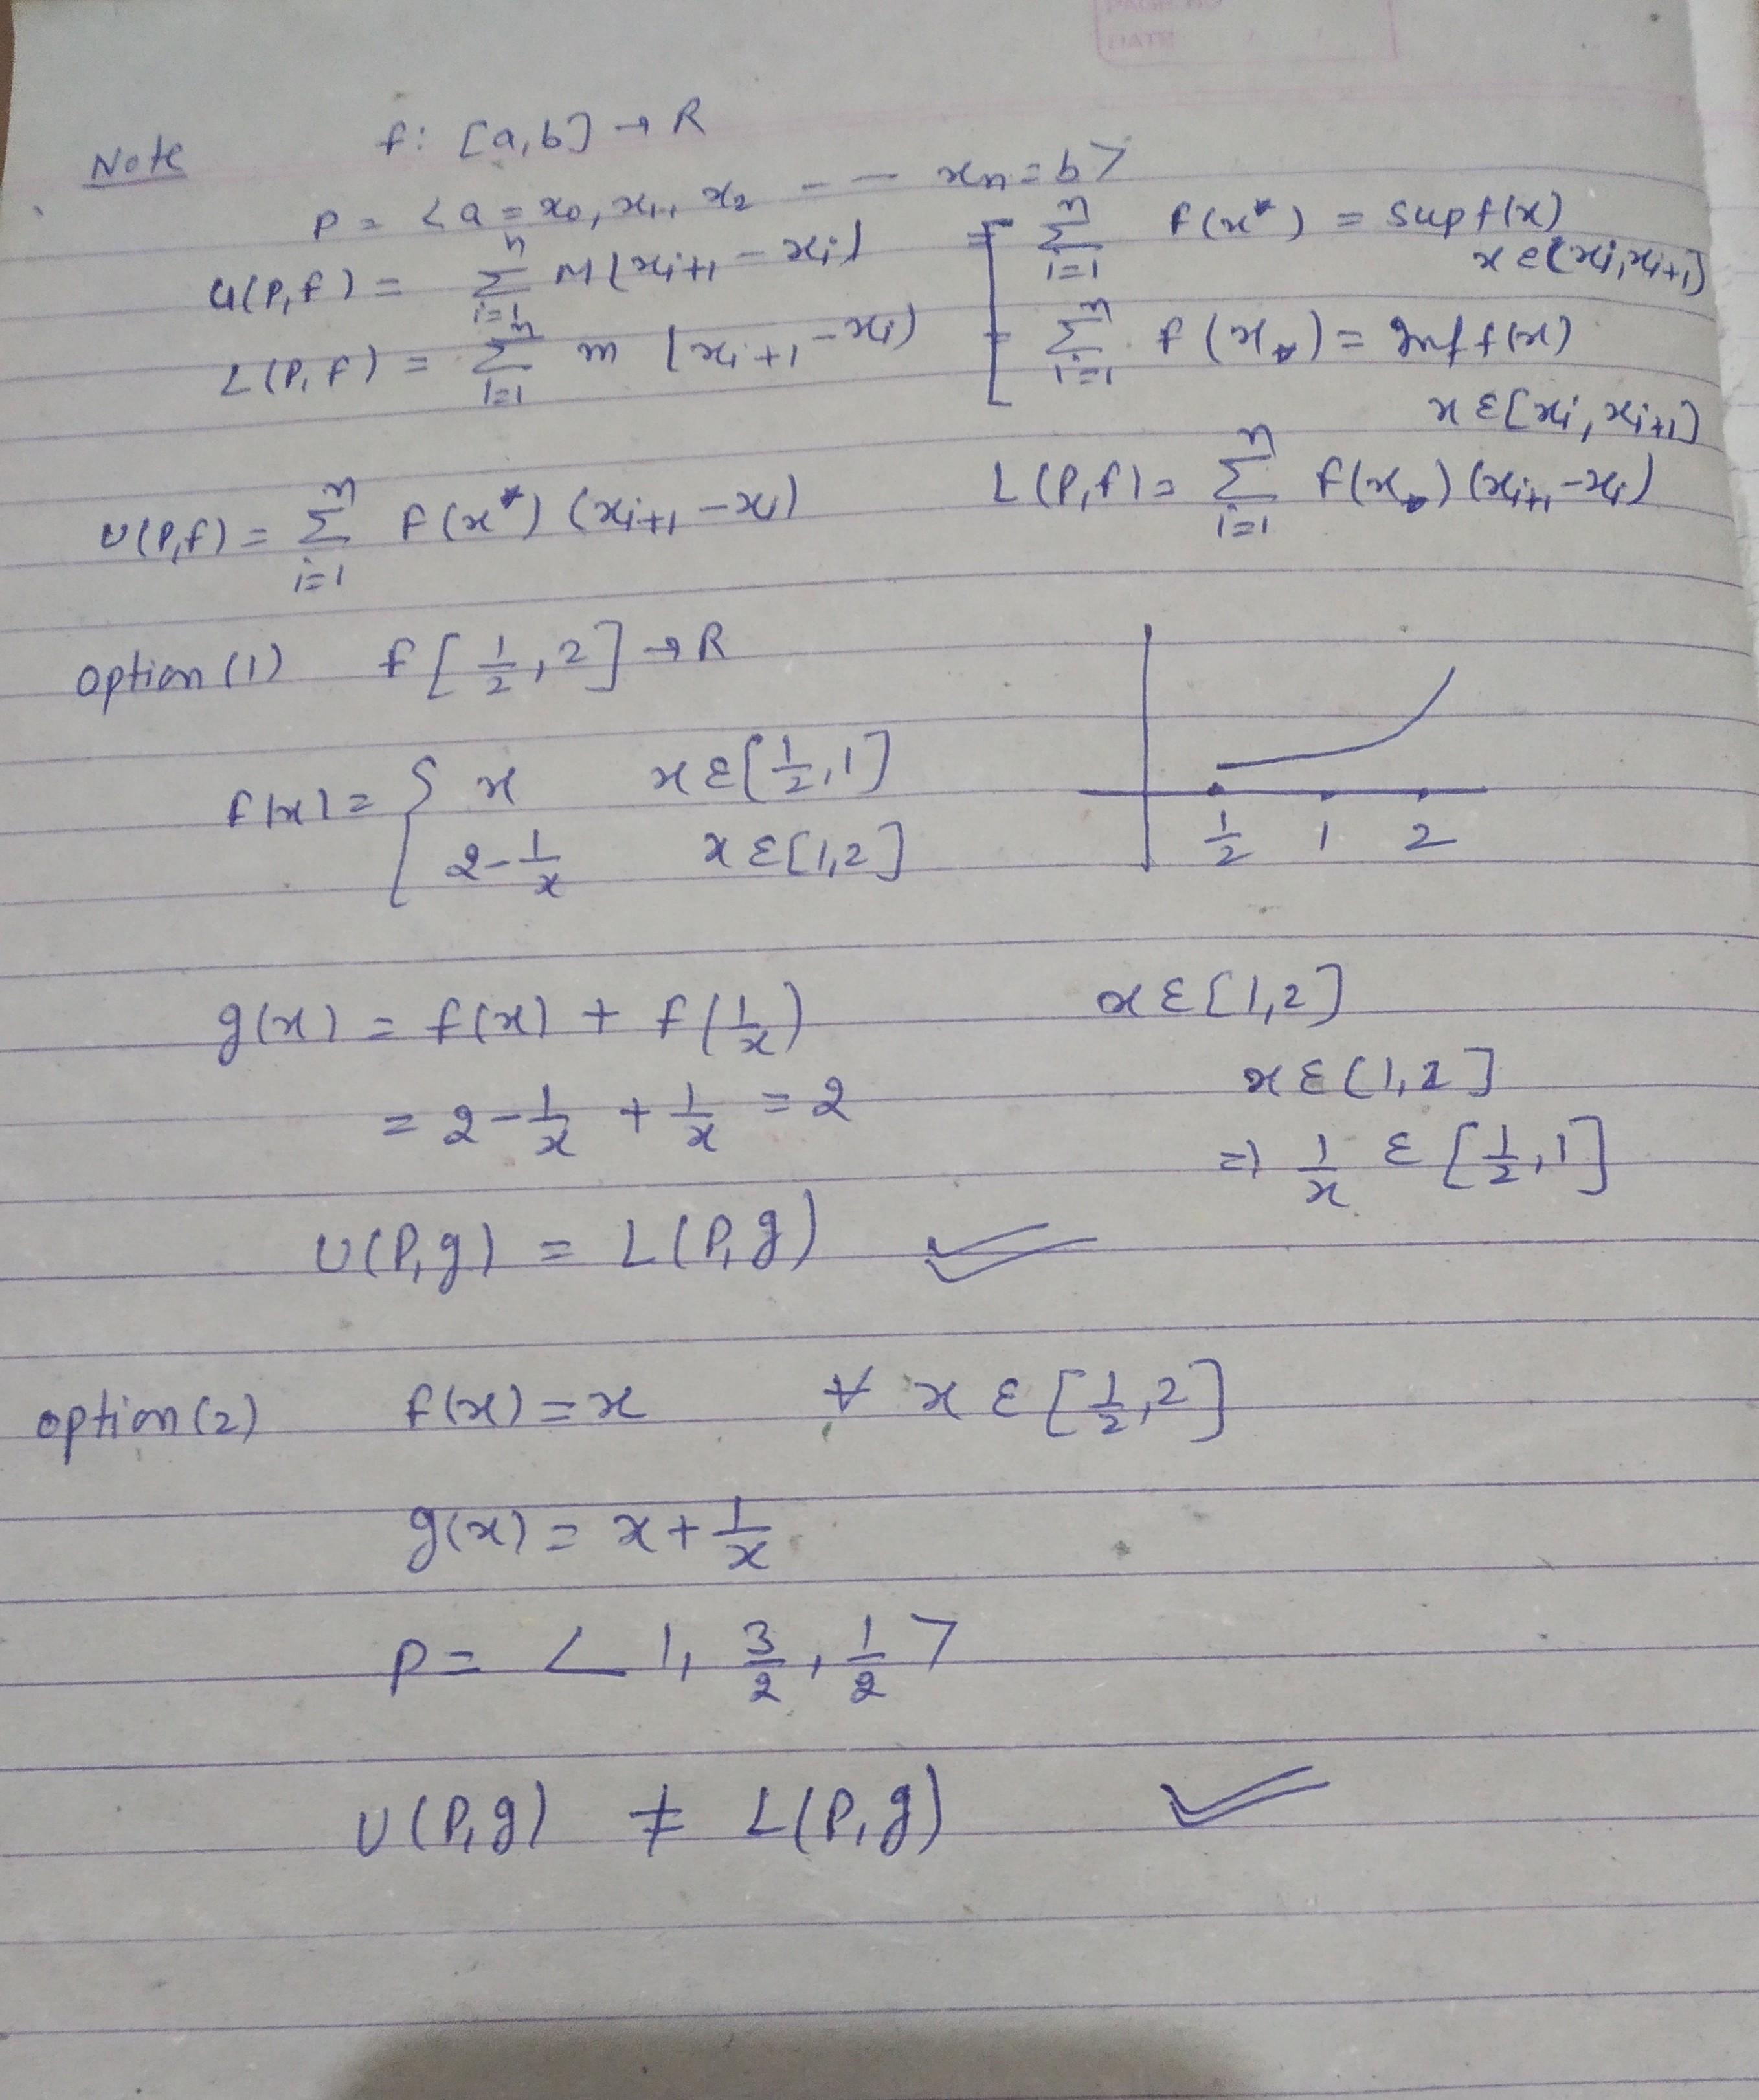 PAGE NO
DATE
Note f: [a,b] → R
P = < a = x₀, x₁, x₂ - - xₙ = b >
U(P,f) = ∑ᵢ₌₁ⁿ M (xᵢ₊₁ - xᵢ) = ∑ᵢ₌₁ⁿ f(x*) = sup f(x) x ε [xᵢ, xᵢ₊₁]
L(P,f) = ∑ᵢ₌₁ⁿ m (xᵢ₊₁ - xᵢ) = ∑ᵢ₌₁ⁿ f(x⁎) = Inf f(x)
x ε [xᵢ, xᵢ₊₁]
U(P,f) = ∑ᵢ₌₁ⁿ f(x*) (xᵢ₊₁ - xᵢ) L(P,f) = ∑ᵢ₌₁ⁿ f(x⁎) (xᵢ₊₁ - xᵢ)
option (1) f [1/2, 2] → R
f(x) = { x x ε [1/2, 1]
2 - 1/x x ε [1,2]
1/2 1 2
g(x) = f(x) + f(1/x) x ε [1,2]
x ε [1,2]
= 2 - 1/x + 1/x = 2
⇒ 1/x ε [1/2, 1]
U(P,g) = L(P,g) ✓
option (2) f(x) = x ∀ x ε [1/2, 2]
g(x) = x + 1/x
P = < 1, 3/2, 1/2 >
U(P,g) ≠ L(P,g) ✓